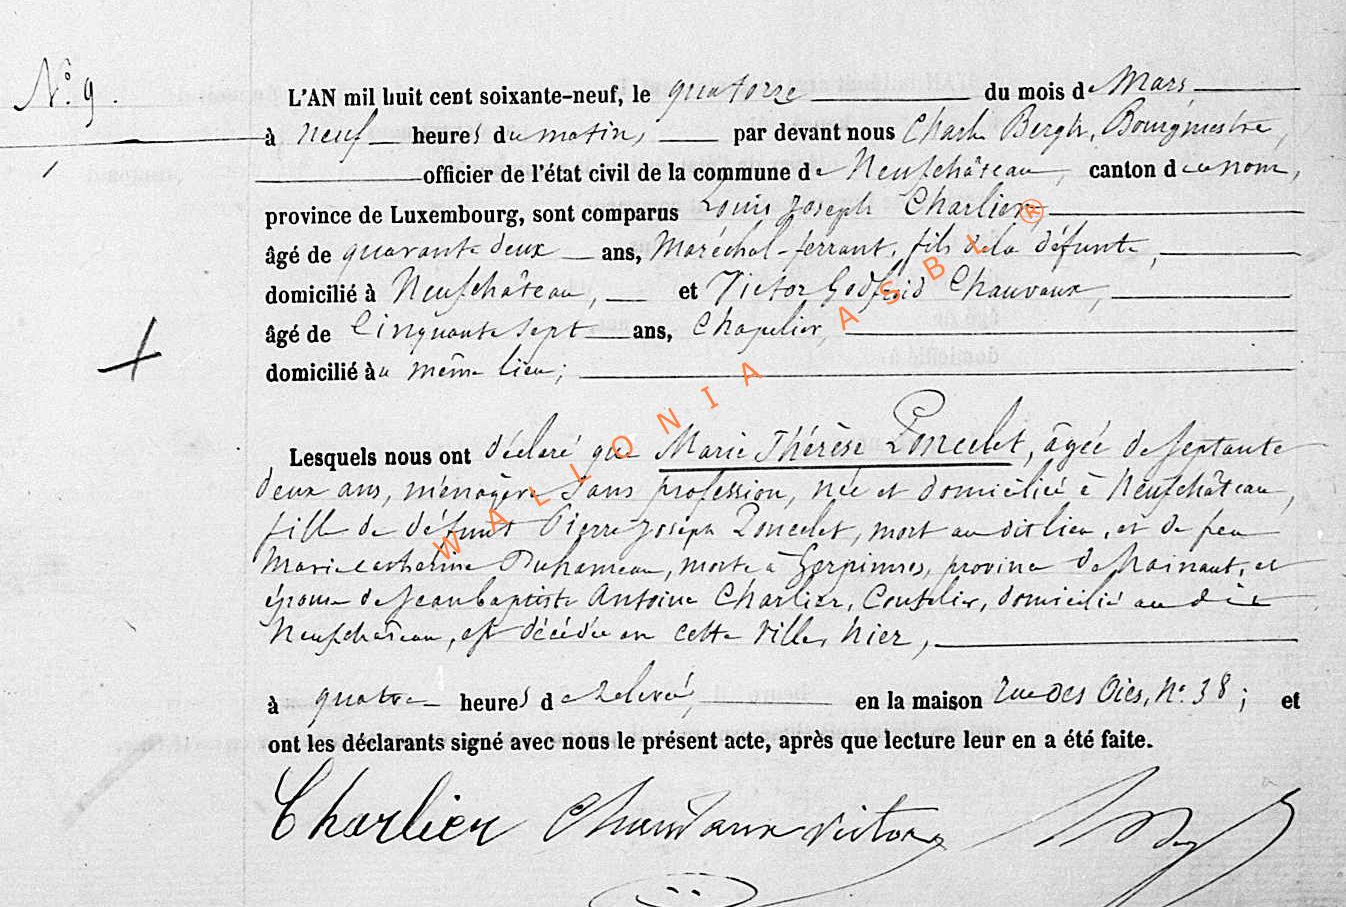 N° 9.
L'AN mil huit cent soixante-neuf, le quatorze du mois de Mars
à neuf heures du matin, par devant nous Bergh, Bourgmestre,
officier de l'état civil de la commune de Neufchâteau, canton du nom,
province de Luxembourg, sont comparus Louis Joseph Charlier,
âgé de quarante deux ans, Maréchal-ferrant, fils de la défunte,
domicilié à Neufchâteau, et Victor Godfroid Chauvaux,
âgé de cinquante sept ans, Chapelier,
domicilié au même lieu;
Lesquels nous ont déclaré que Marie Thérèse Poncelet, âgée de septante
deux ans, ménagère sans profession, née et domiciliée à Neufchâteau,
fille de défunt Pierre Joseph Poncelet, mort au dit lieu, et de feu
Marie Catherine Duhameau, morte à Gerpinnes, province de Hainaut, et
épouse de Jean baptiste Antoine Charlier, Coutelier, domicilié au dit
Neufchâteau, est décédée en cette ville, hier,
à quatre heures de relevée, en la maison rue des Oies, N° 38; et
ont les déclarants signé avec nous le présent acte, après que lecture leur en a été faite.
Charlier Chauvaux Victor
WALLONIA ASBL ®